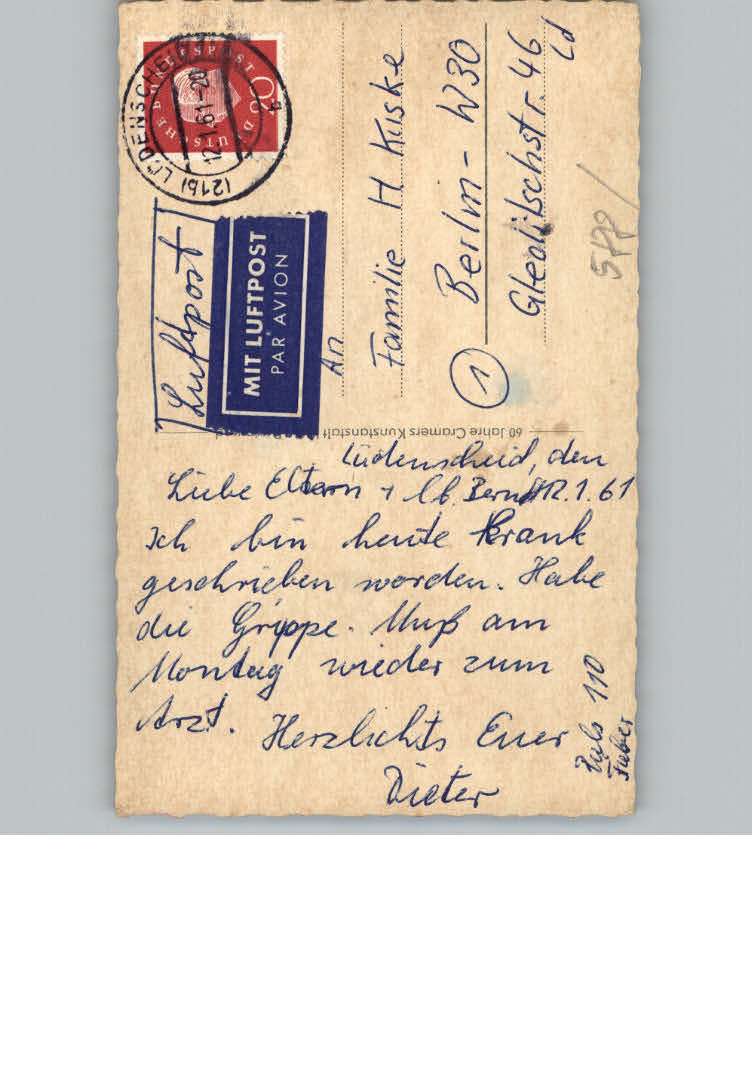 Lüdenscheid, den
Liebe Eltern + lb. Bernd 12.1.61
Ich bin heute krank
geschrieben worden. Habe
die Grippe. Muß am
Montag wieder zum
Arzt. Herzlichts Euer
Dieter
Puls 110
Fieber
60 Jahre Cramers Kunstanstalt
Luftpost
MIT LUFTPOST
PAR AVION
An
Familie H Kuske
(1) Berlin - W30
Gleditschstr. 46
DEUTSCHE BUNDESPOST
(21b) LÜDENSCHEID
12.1.61-20
g